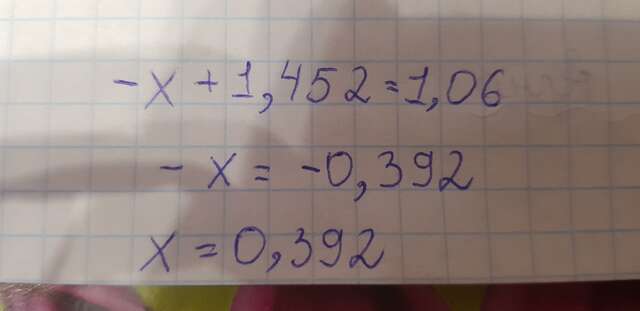 -x+1,452=1,06
-x=-0,392
x=0,392